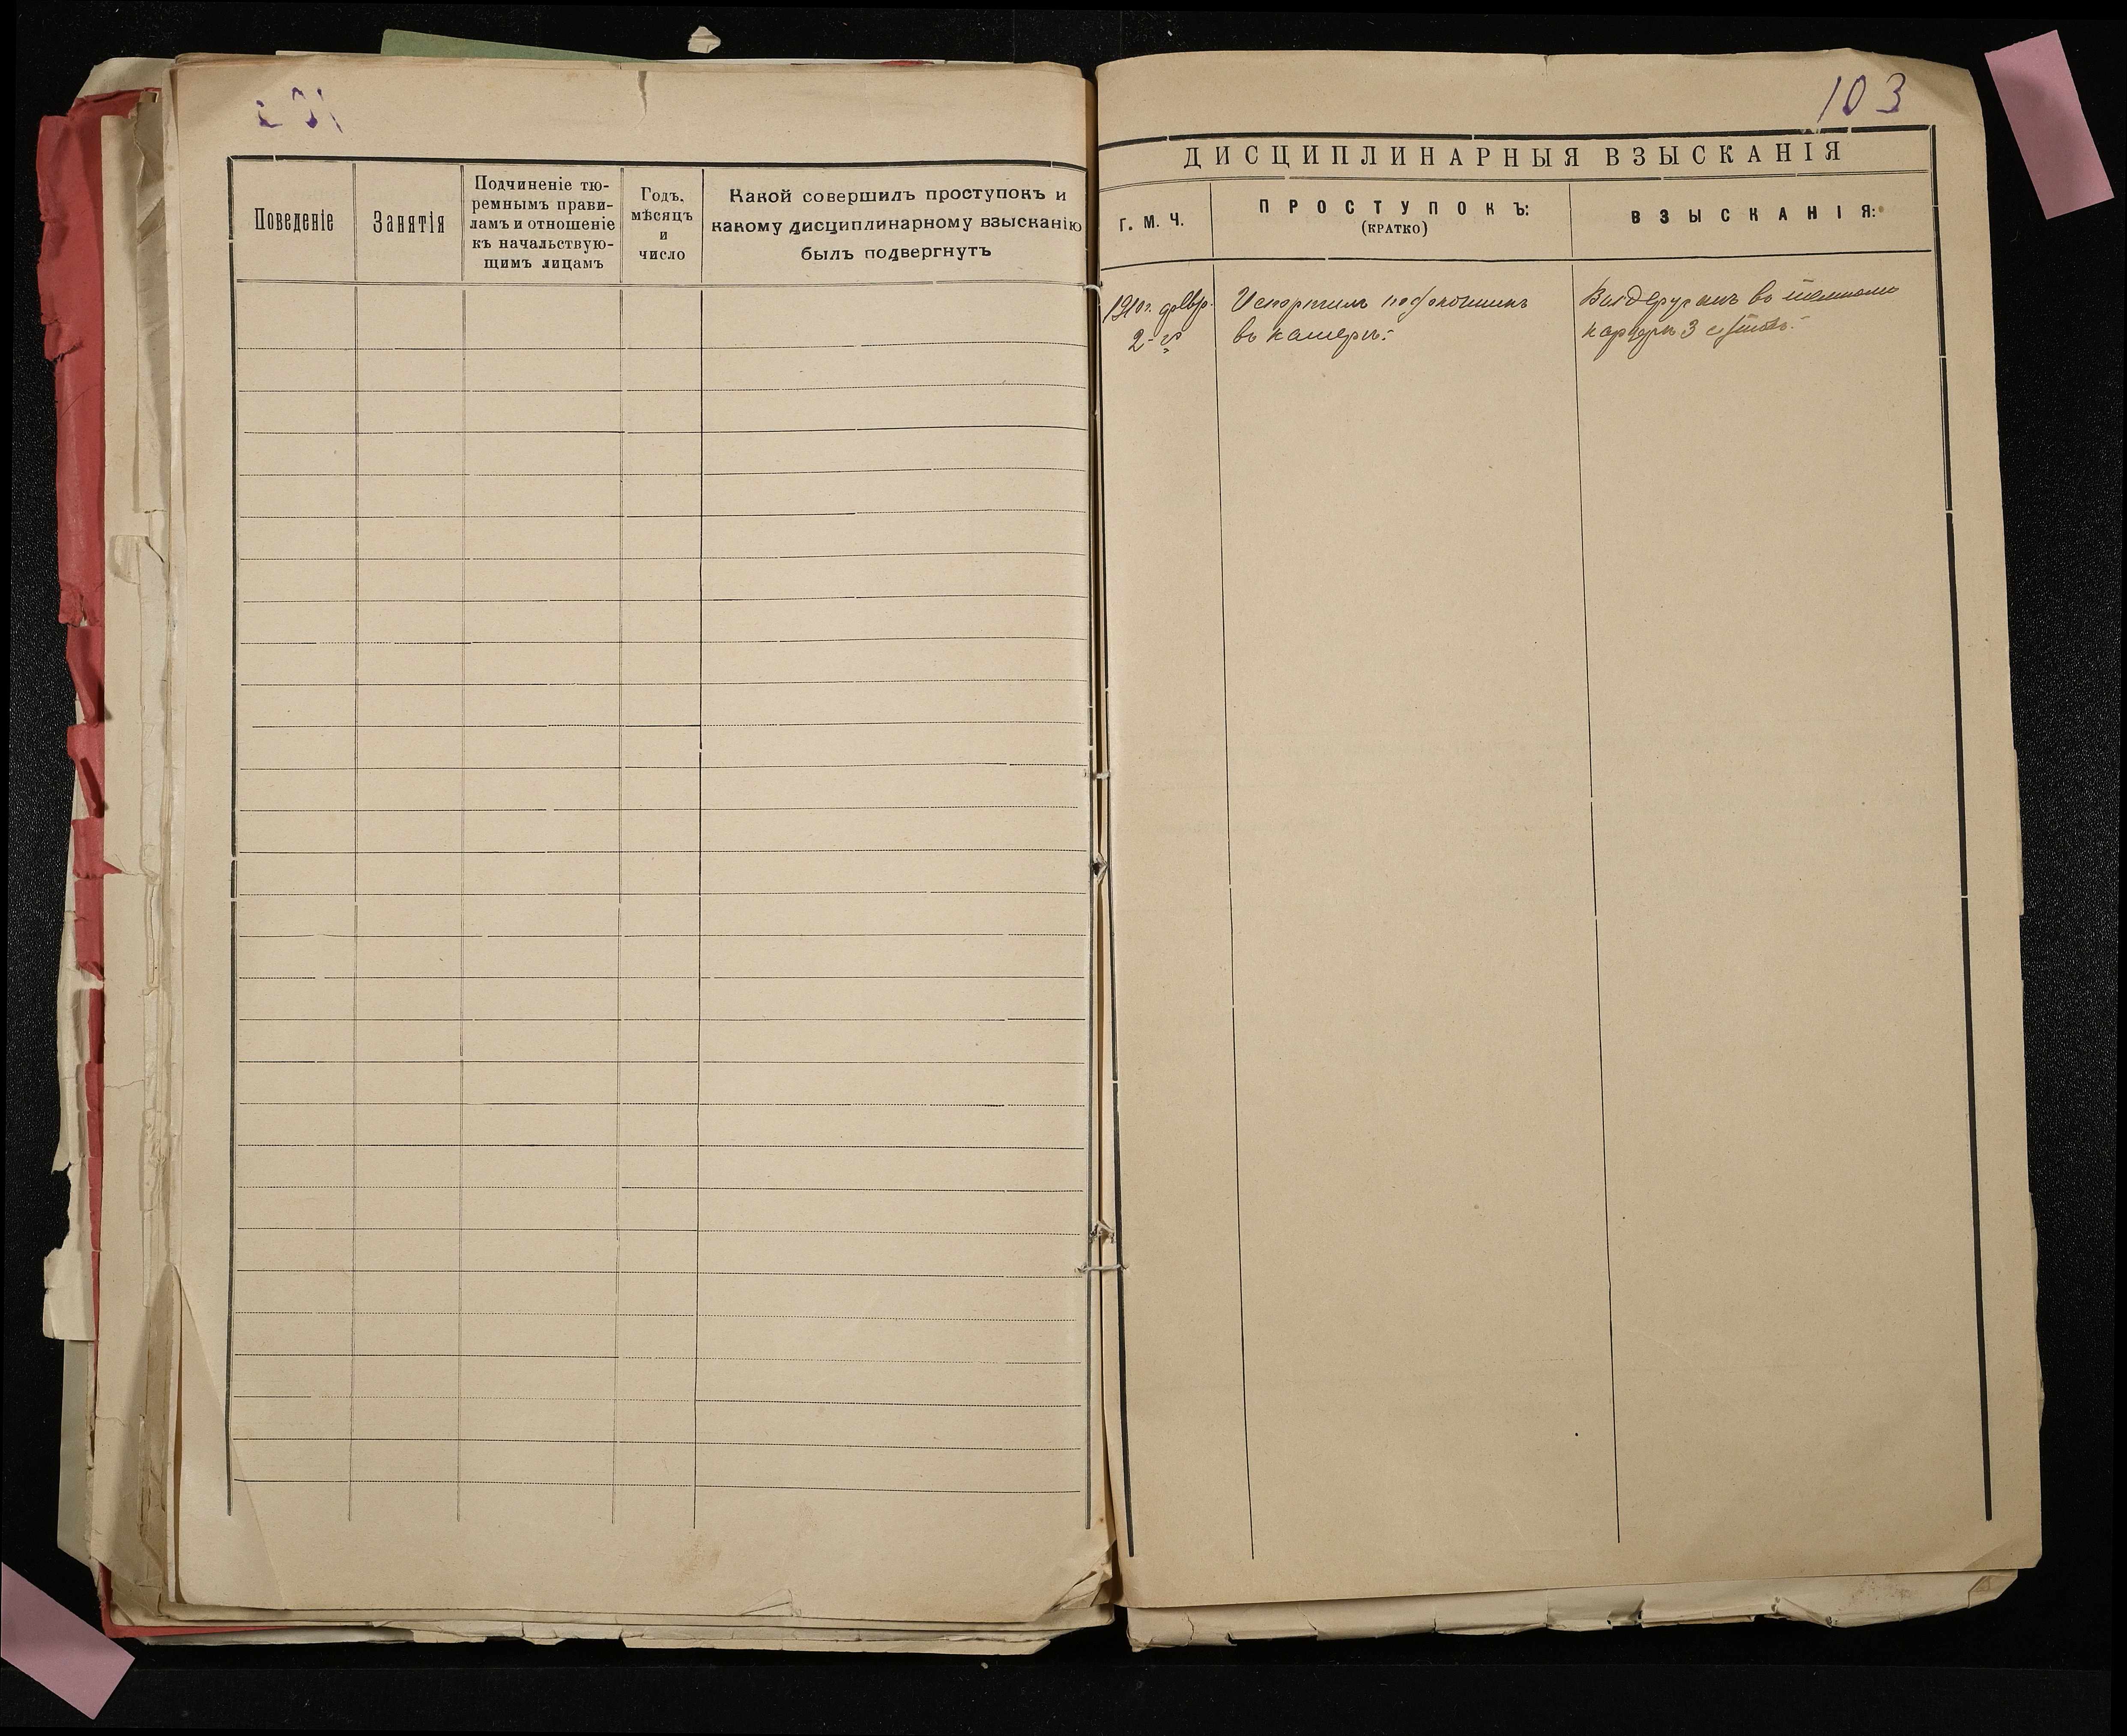 103
Поведеніе
Занятія
Подчиненіе тю-
ремнымъ прави-
ламъ и отношеніе
къ начальствую-
щимъ лицамъ
Годъ,
мѣсяцъ
и
число
Какой совершилъ проступокъ и
какому дисциплинарному взысканію
былъ подвергнутъ
ДИСЦИПЛИНАРНЫЯ ВЗЫСКАНІЯ
Г. М. Ч.
ПРОСТУПОКЪ:
(КРАТКО)
ВЗЫСКАНІЯ:
1910г. февр.
2-го
Испортилъ подоконникъ
въ камерѣ.
Выдержанъ въ темномъ
карцерѣ 3 сутокъ.